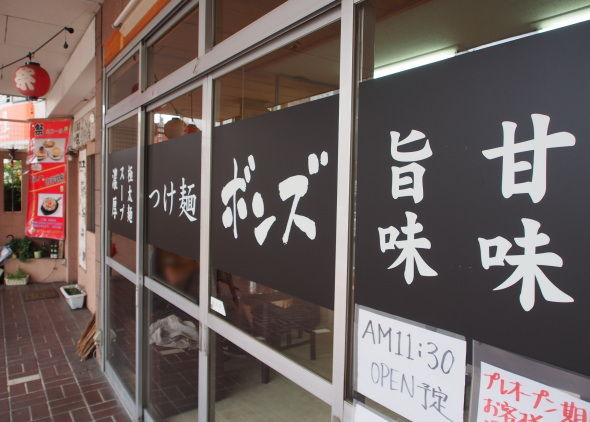 濃厚
スープ
極太麺
つけ麺
ボンズ
旨味
甘味
AM11:30
OPEN予定
プレオープン期
お客様